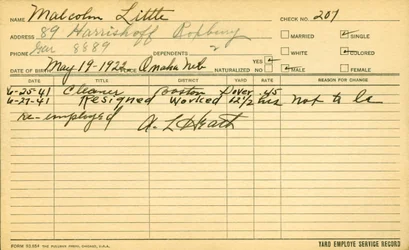 NAME Malcolm Little CHECK NO. 207
ADDRESS 89 Harrishoff Roxbury MARRIED SINGLE
PHONE Gar 8889 DEPENDENTS 2 WHITE COLORED
DATE OF BIRTH May 19-1922 Omaha Neb NATURALIZED YES NO MALE FEMALE
DATE TITLE DISTRICT YARD RATE REASON FOR CHANGE
6-25-41 Cleaner Boston Dover .45
6-27-41 Resigned Worked 12 1/2 hrs Not to be
re-employed A. L. Heath
FORM 93.254 THE PULLMAN PRESS, CHICAGO, U.S.A. YARD EMPLOYE SERVICE RECORD